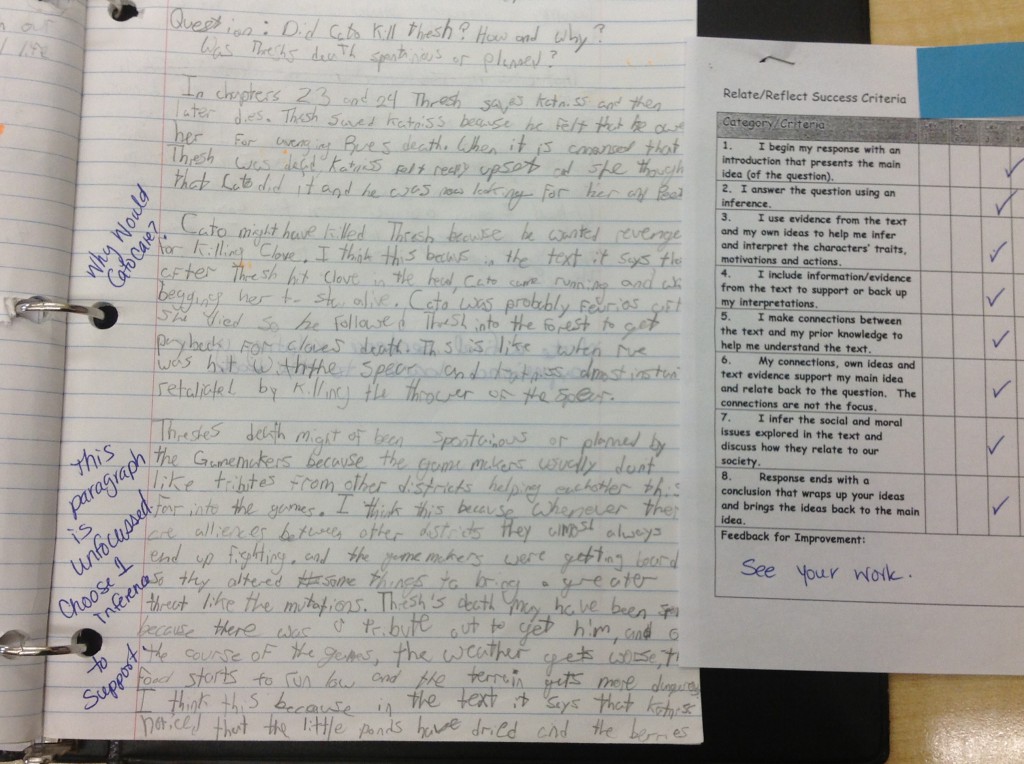 Question: Did Cato kill thesh? How and why?
Was Threshs death spontinous or planned?
In chapters 23 and 24 Thresh saves Katniss and then
later dies. Thresh saved Katniss because he felt that he owe
her for avenging Rues death. When it is announced that
Thresh was dead, Katniss felt really upset and she though
that Cato did it and he was now looking for her and Peeta
Cato might have killed Thresh because he wanted revenge
for killing Clove. I think this because in the text it says tha
after Thresh hit Clove in the head, Cato came running and was
begging her to stay alive. Cato was probably after
she died so he followed Thresh into the forest to get
payback for cloves death. This is like when rue
was hit with the spear and katniss almost instan
by killing the thrower of the spear.
death might of been spontainous or planned by
the Gamemakers because the game makers usually dont
like tributes from other districts helping eachother this
far into the games. I think this because whenever ther
are alliences between other districts they almost always
end up fighting, and the game makers were getting board
so they altered some things to bring a greater
threat like the mutations. Thresh's death may have been
because there was a tribute out to get him, and
the course of the games, the weather gets worse,
food starts to run low and the terrein gets more
I think this because in the text it says that Katniss
noticed that the little ponds have dried and the berries
Why Would
Cato Care?
This
paragraph
is
unfocussed.
Choose 1
inference
to
support.
Relate/Reflect Success Criteria
Category/Criteria
1. I begin my response with an
introduction that presents the main
idea (of the question).
2. I answer the question using an
inference.
3. I use evidence from the text
and my own ideas to help me infer
and interpret the characters' traits,
motivations and actions.
4. I include information/evidence
from the text to support or back up
my interpretations.
5. I make connections between
the text and my prior knowledge to
help me understand the text.
6. My connections, own ideas and
text evidence support my main idea
and relate back to the question. The
connections are not the focus.
7. I infer the social and moral
issues explored in the text and
discuss how they relate to our
society.
8. Response ends with a
conclusion that wraps up your ideas
and brings the ideas back to the main
idea.
Feedback for Improvement:
See your work.